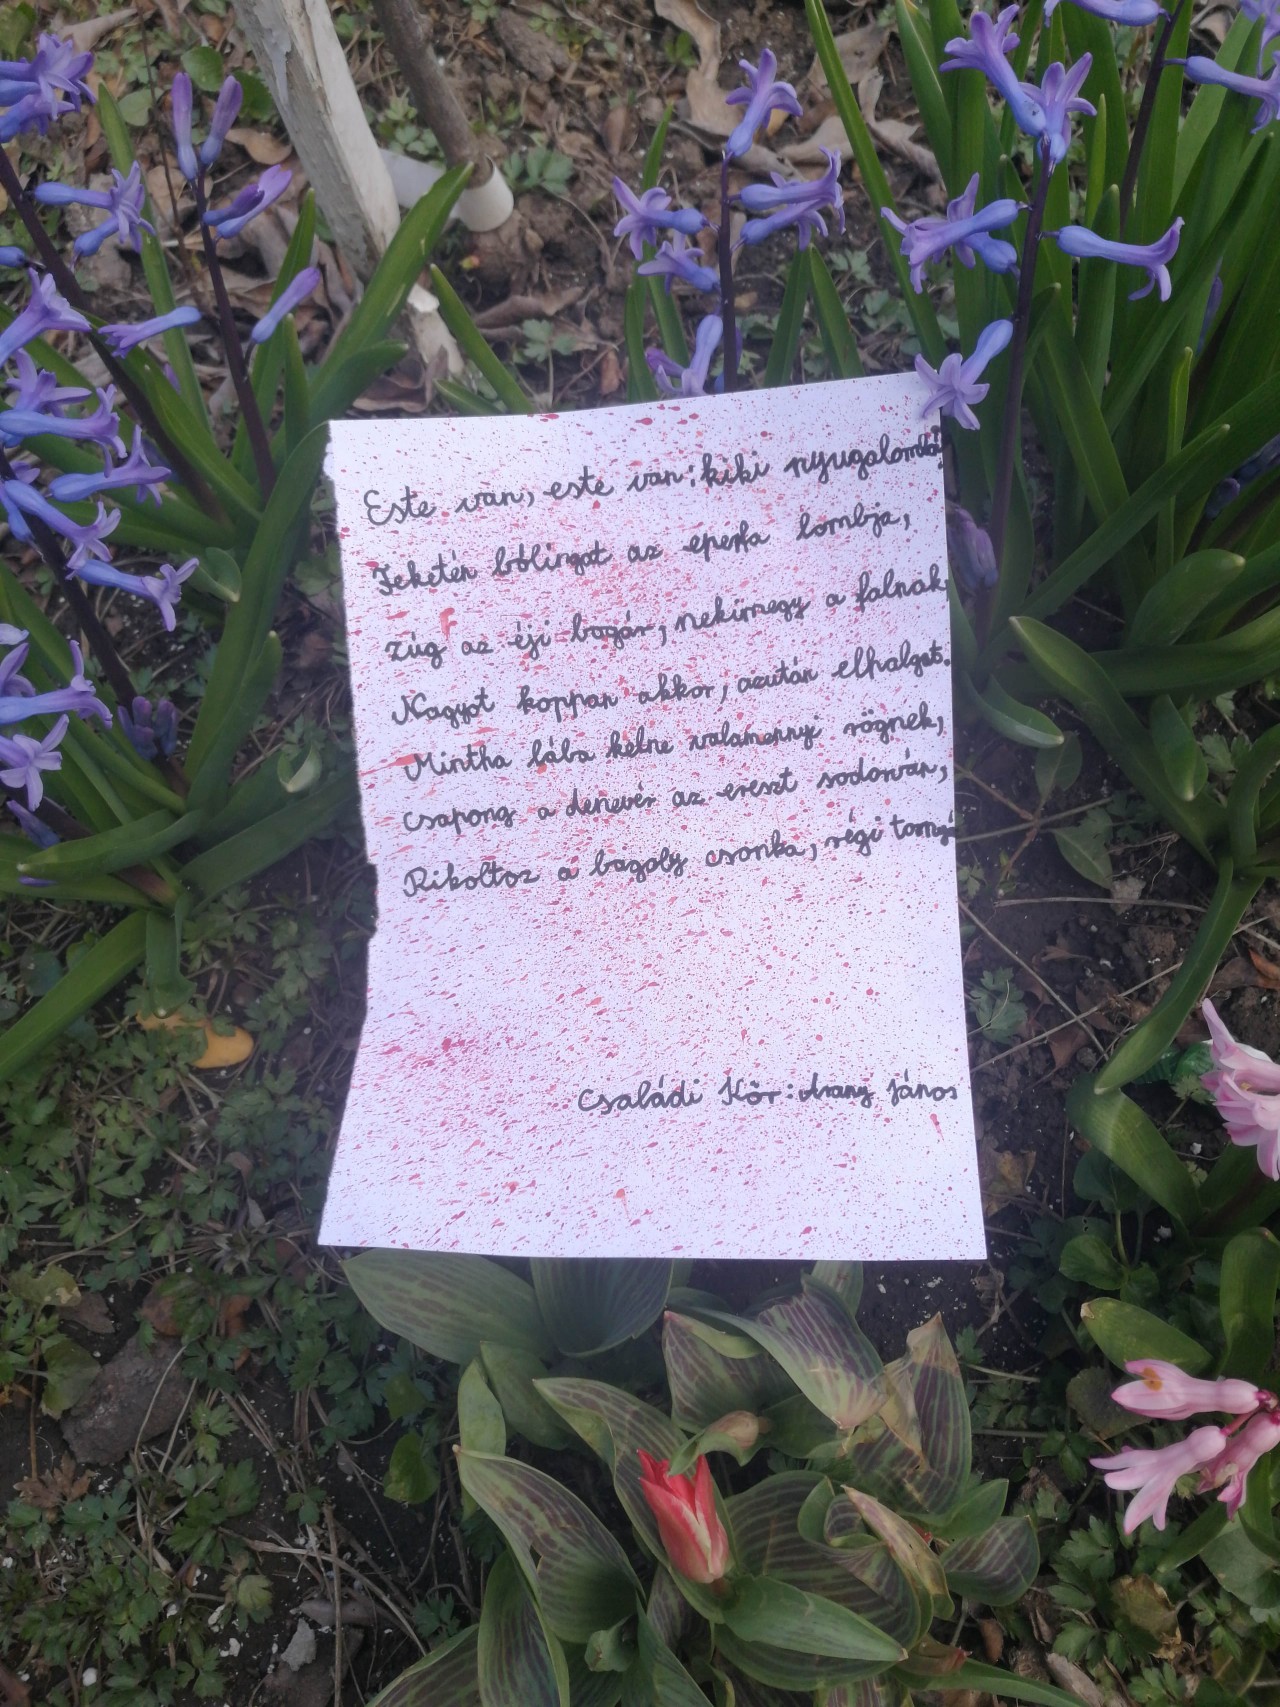 Este van, este van: kiki nyugalomba!
Feketén bólingat az eperfa lombja,
zúg az éji bogár, nekimegy a falnak,
Nagyot koppan akkor, azután elhalgat.
Mintha lába kelne valamennyi rögnek,
Csapong a denevér az ereszt sodorván,
Rikoltoz a bagoly csonka, régi tornyá
Családi Kör: Arany János